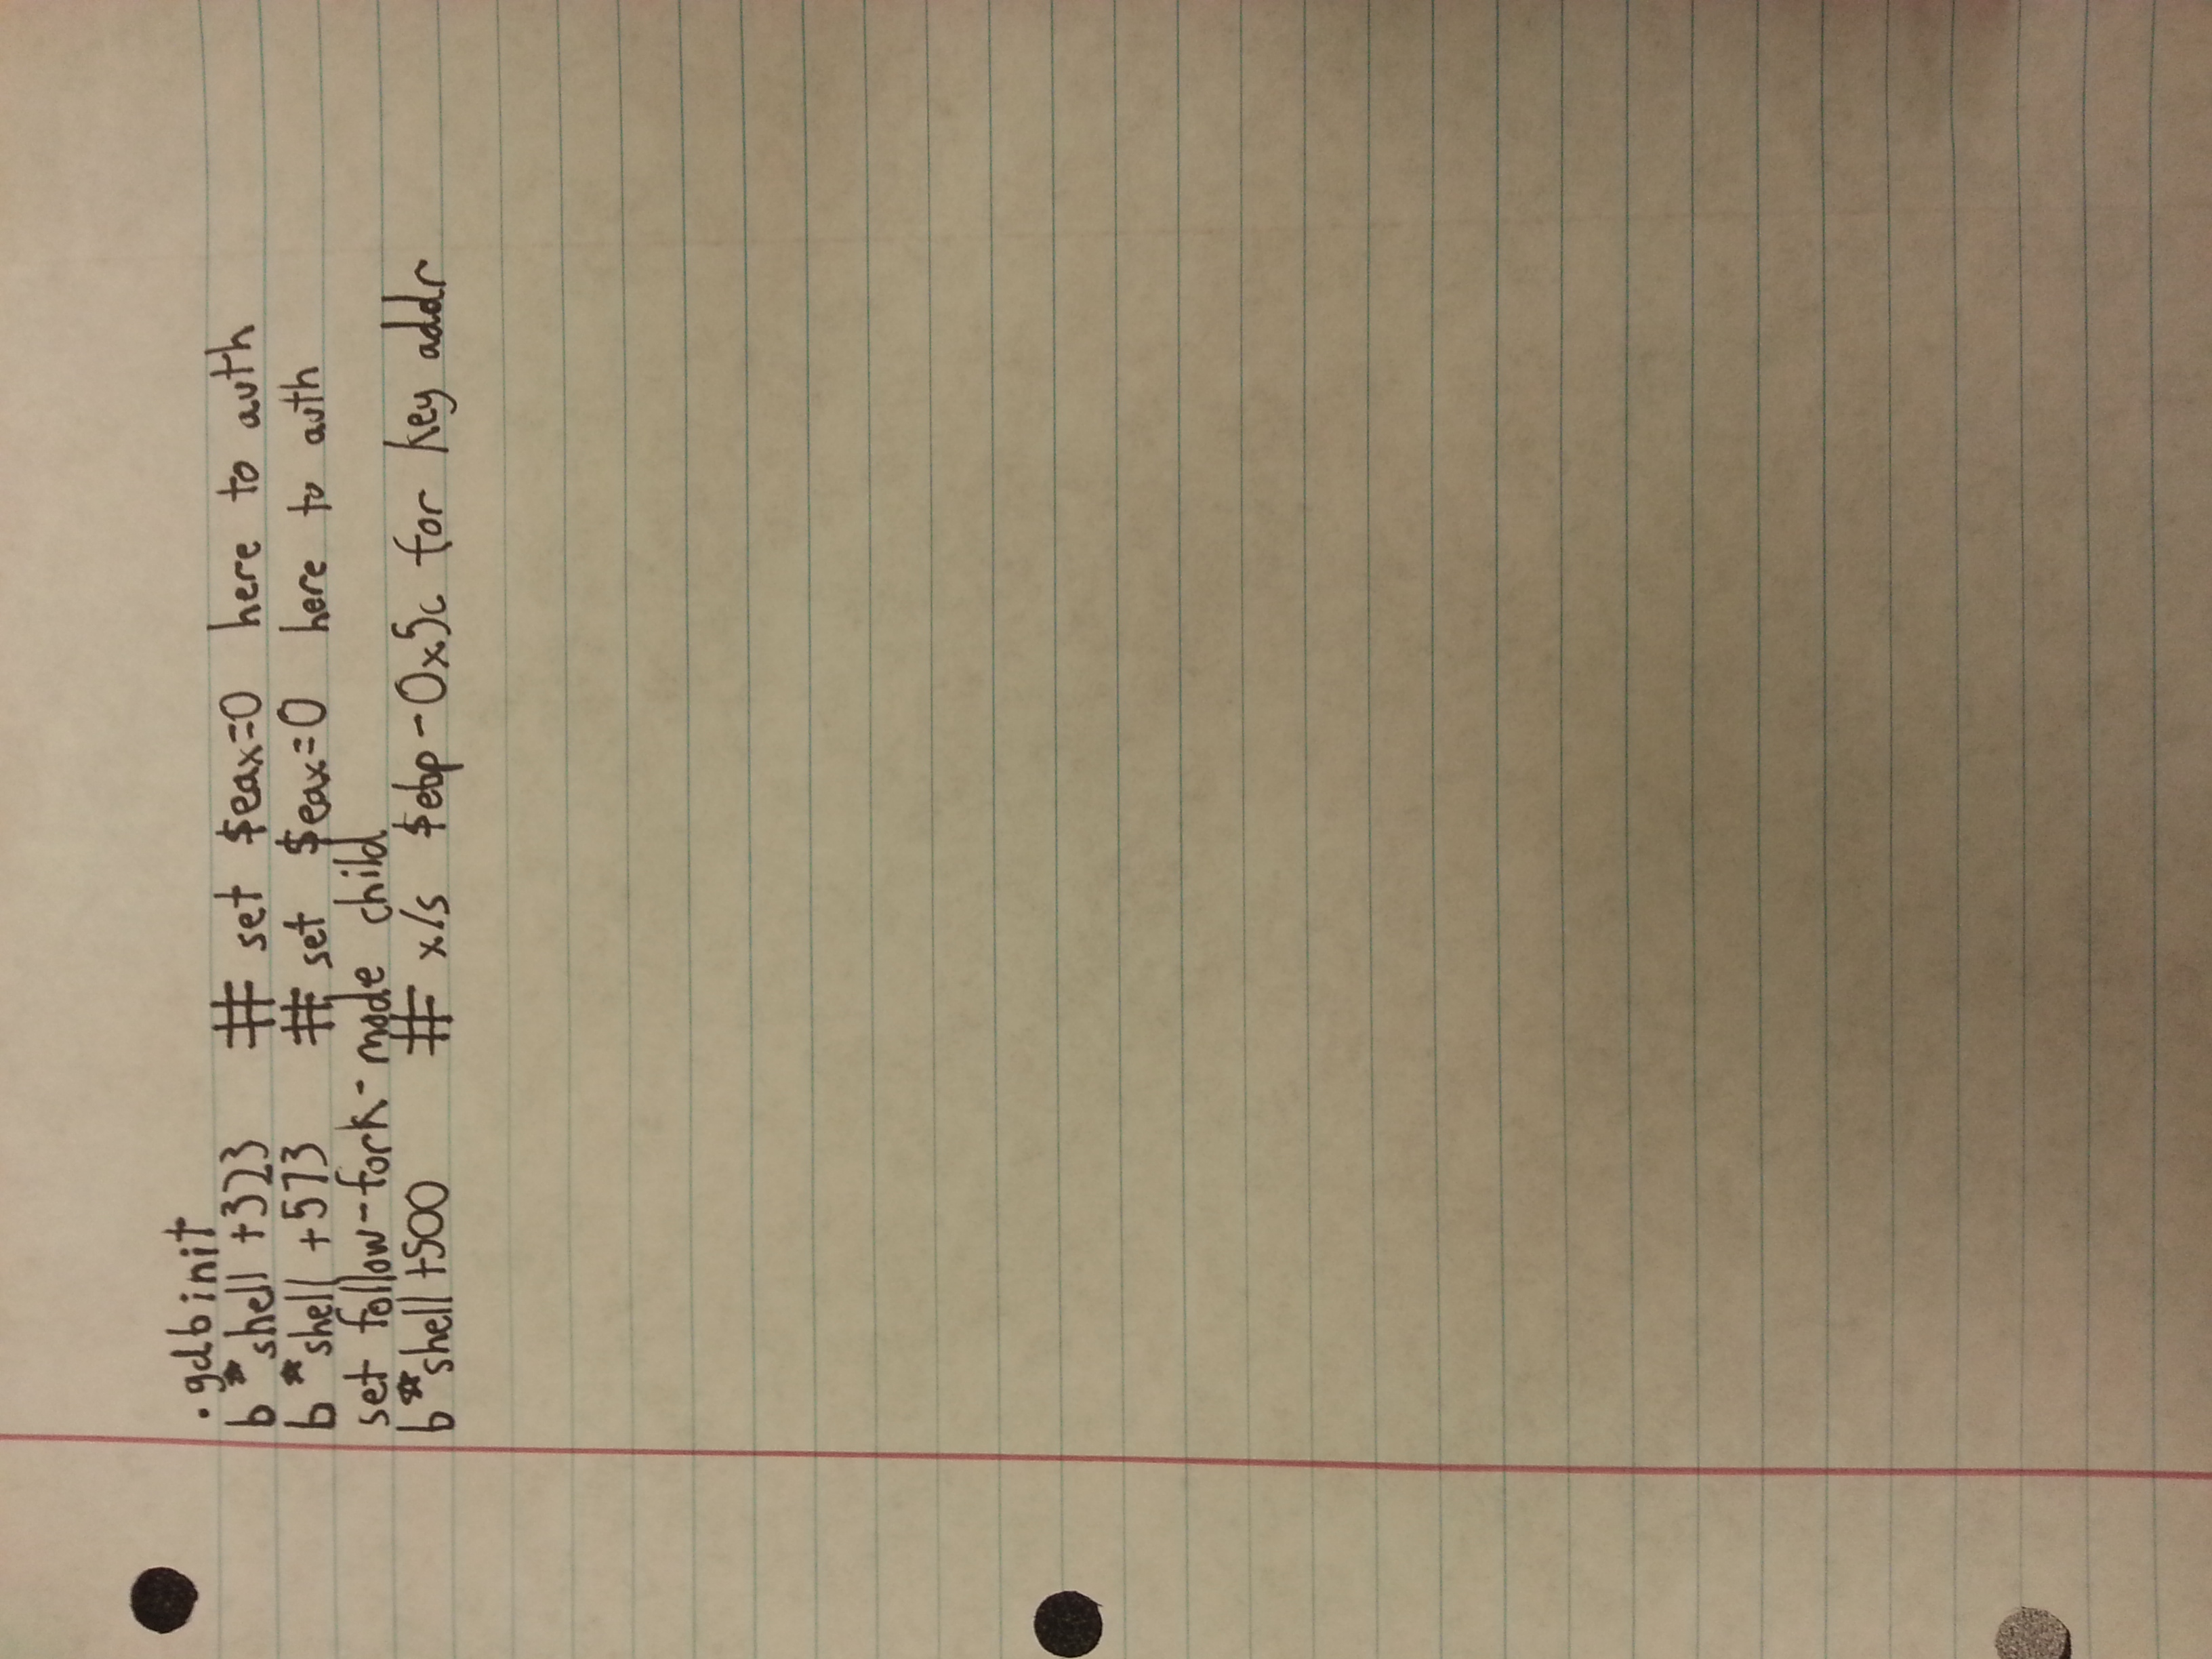 .gdbinit
b *shell +323 # set $eax=0 here to auth
b *shell +573 # set $eax=0 here to auth
set follow-fork-mode child
b *shell +500 # x/s $ebp-0x5c for key addr